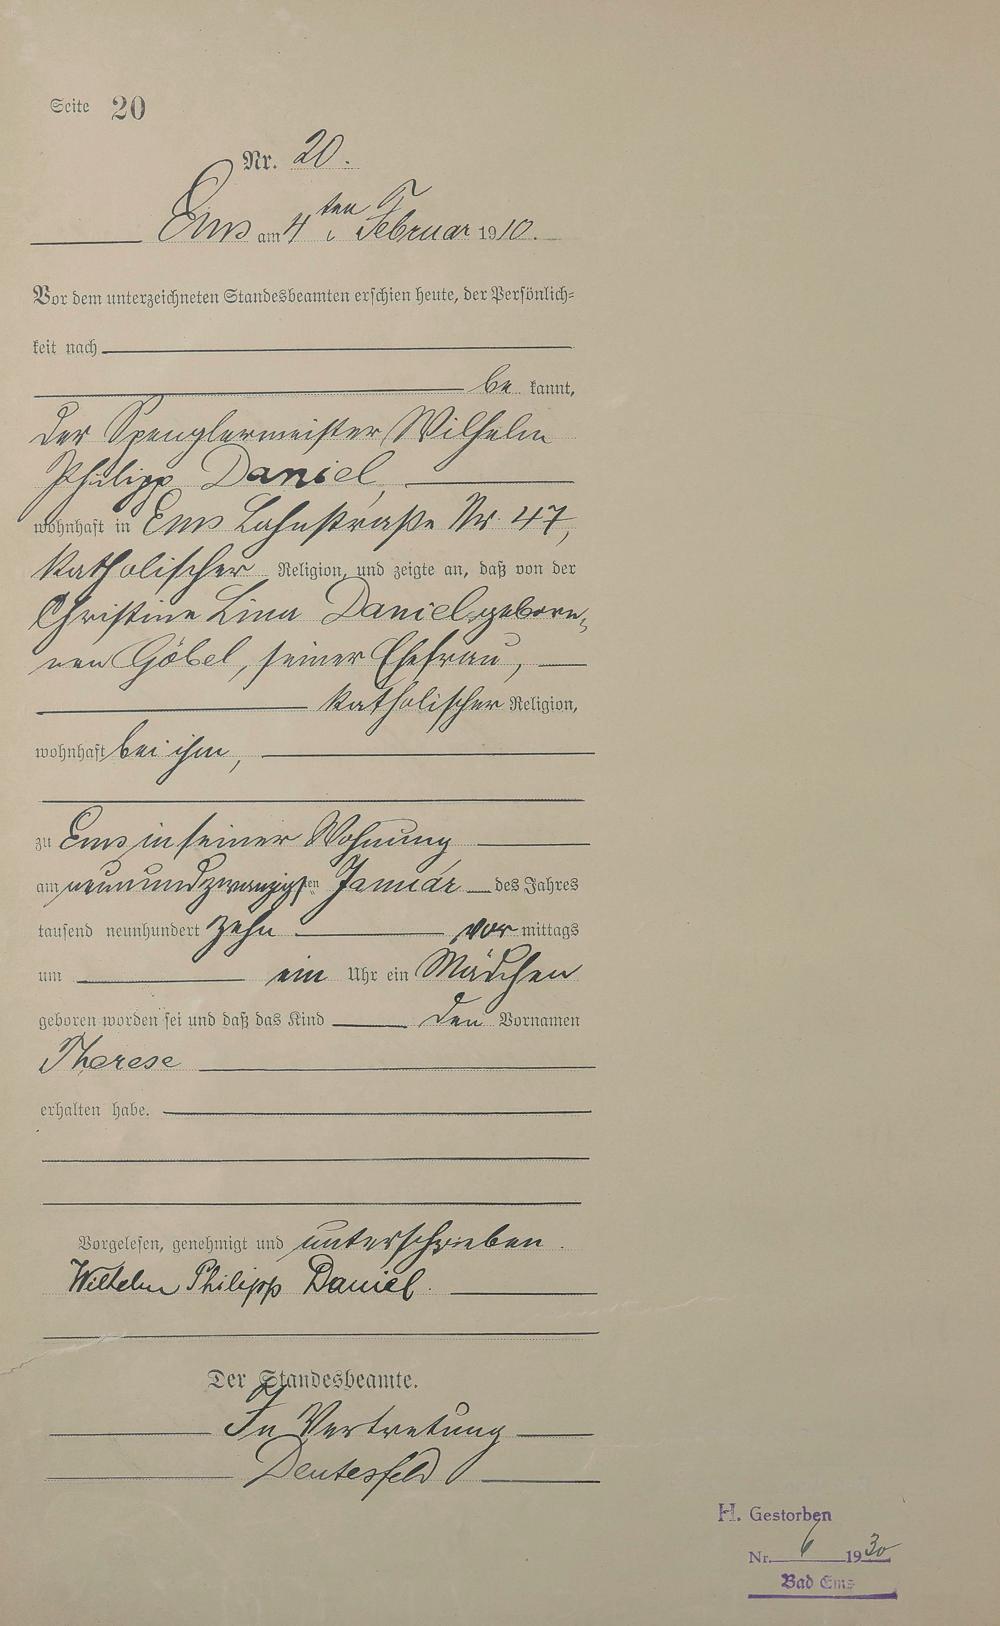 Seite 20
Nr. 20.
Ems am 4ten Februar 1910.
Vor dem unterzeichneten Standesbeamten erschien heute, der Persönlich=
keit nach
be kannt,
der Spenglermeister Wilhelm
Philipp Daniel,
wohnhaft in Ems Lahnstraße Nr. 47,
katholischer Religion, und zeigte an, daß von der
Christine Lina Daniel, gebore-
nen Göbel, seiner Ehefrau,
katholischer Religion,
wohnhaft bei ihm,
zu Ems in seiner Wohnung
am neunundzwanzigsten Januar des Jahres
tausend neunhundert zehn vor mittags
um ein Uhr ein Mädchen
geboren worden sei und daß das Kind den Vornamen
Therese
erhalten habe.
Vorgelesen, genehmigt und unterschrieben.
Wilhelm Philipp Daniel.
Der Standesbeamte.
In Vertretung
H. Gestorben
Nr. 6 1930
Bad Ems